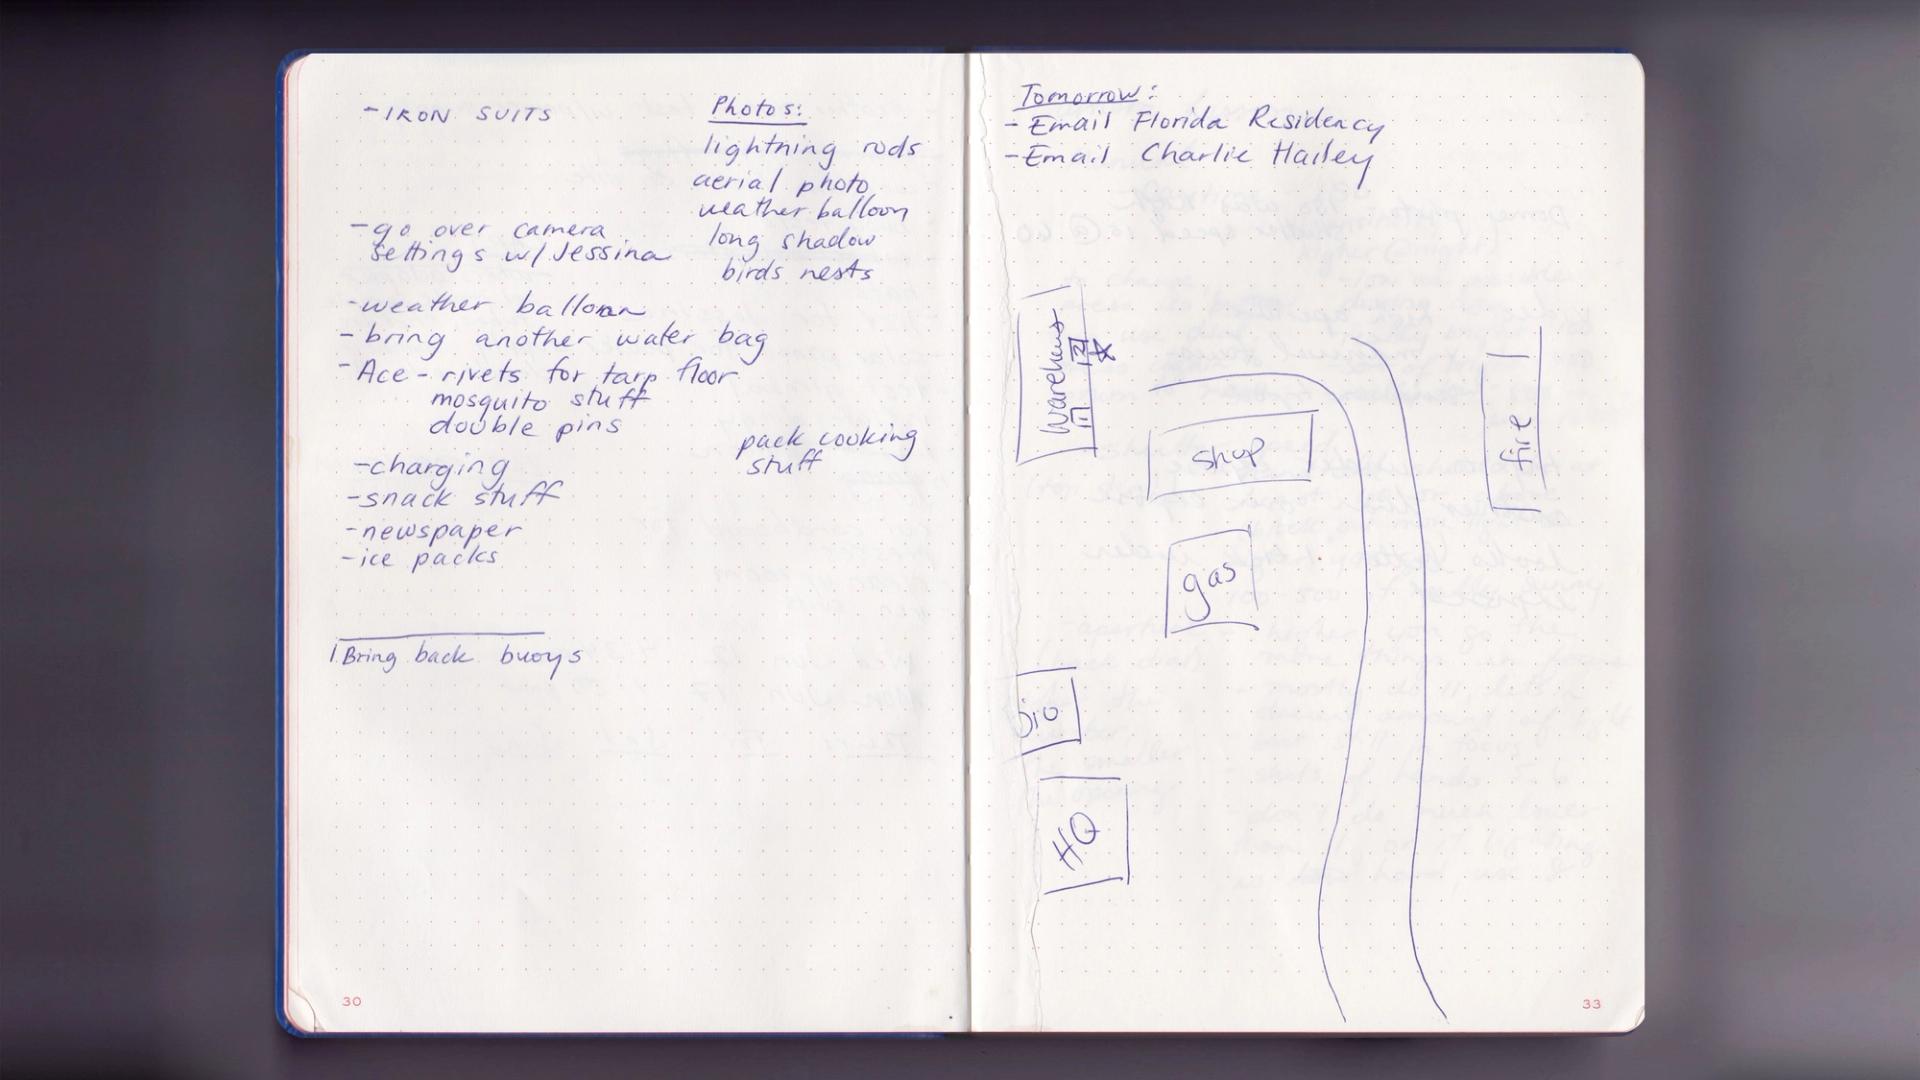 - IRON SUITS
- go over camera
settings w/ Jessina
- weather balloon
- bring another water bag
- Ace - rivets for tarp floor
mosquito stuff
double pins
- charging
- snack stuff
- newspaper
- ice packs
Photos:
lightning rods
aerial photo
weather balloon
long shadow
birds nests
pack cooking
stuff
1. Bring back buoys
30
Tomorrow:
- Email Florida Residency
- Email Charlie Hailey
Warehouse
shop
fire
gas
bio
HQ
33